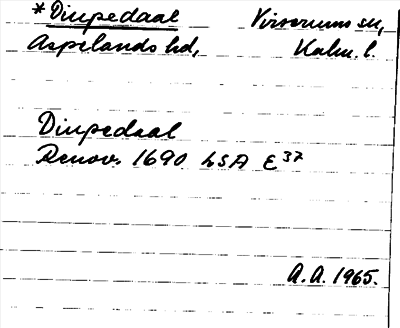 *Diupedaal Virserums sn,
Aspelands hd, Kalm. l.
Diupedaal
Renov. 1690 LSA E 37
A.A. 1965.